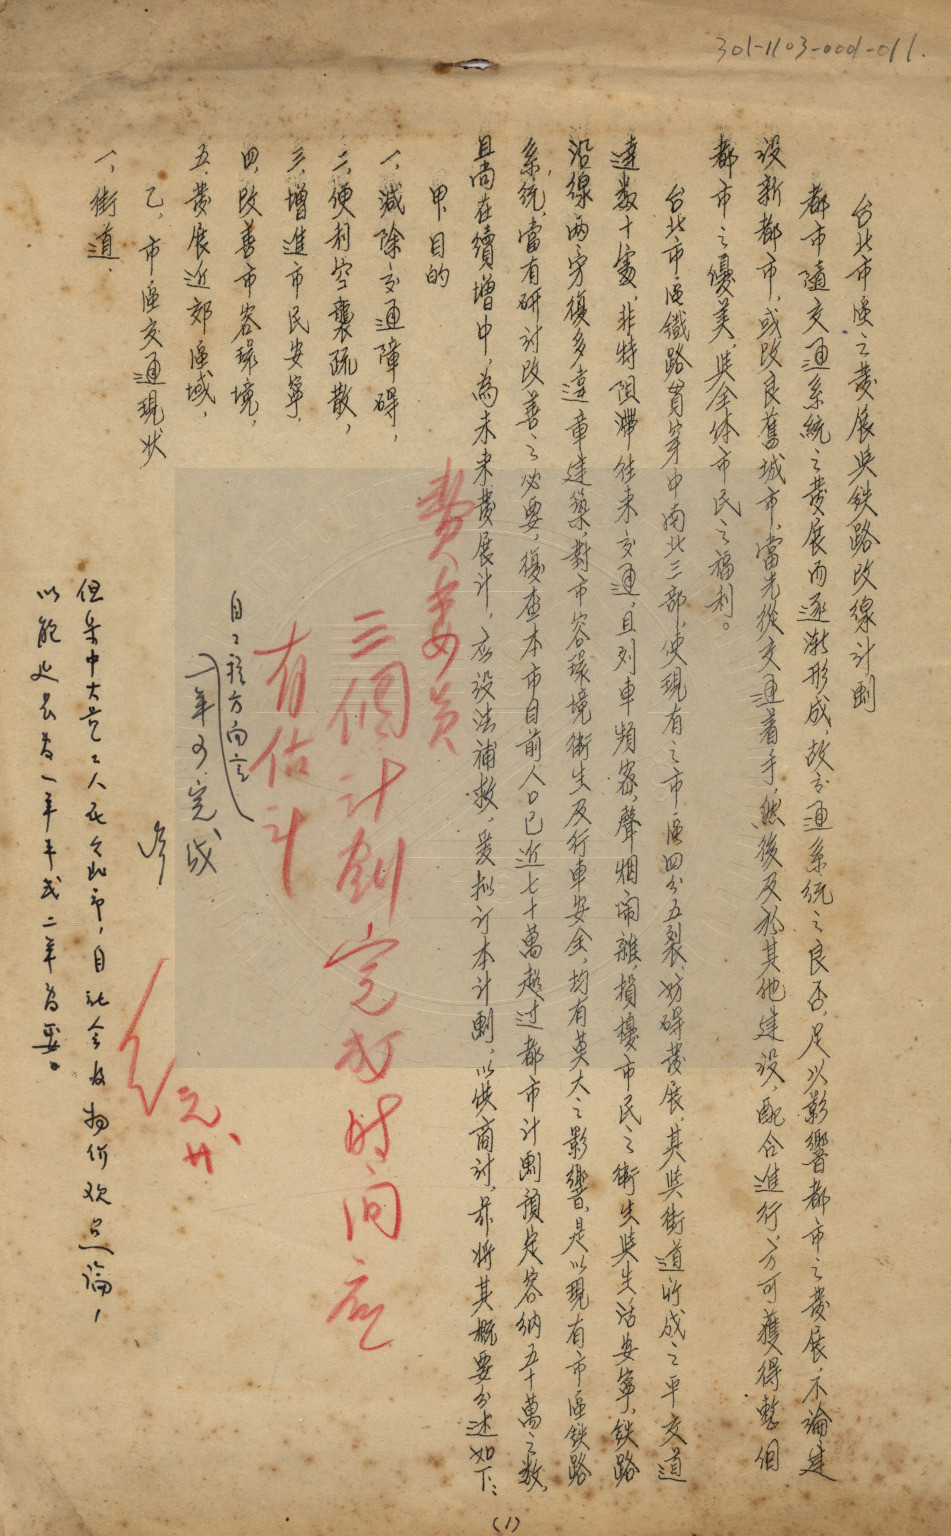 301-1103-0001-011.
台北市區之發展與鉄路改線計劃
都市隨交通系統之發展而逐漸形成，故交通系統之良否，足以影響都市之發展，不論建
設新都市，或改良舊城市，當先從交通着手，然後及於其他建設，配合進行，方可獲得整個
都市之優美，與全体市民之福利。
台北市區鐵路貫穿中南北三部，使現有之市區四分五裂，妨碍發展，其與街道所成之平交道
達数十處，非特阻滯往来交通，且列車頻密，聲烟闹雜，損擾市民之衛生與生活安寧，鉄路
沿線两旁復多違章建築，對市容環境衛生及行車安全，均有莫大之影響，是以現有市區鉄路
系統，當有研讨改善之必要，復查本市目前人口已近七十萬超过都市计劃預定容納五十萬之数，
且尚在續增中，為未来發展计，应设法補救，爰拟订本计劃，以供商讨，兹将其概要分述如下：
甲、目的
一、減除交通障碍，
二、便利空襲疏散，
三、增進市民安寧，
四、改善市容環境，
五、發展近郊區域，
乙、市區交通現状
一、街道，
費委員
三個计劃完成时间应
有估计
自工程方向言
一年可完成
但集中大量工人在台北市，自社会及物价观点論，
以能延長为一年半或二年为要。
元廿
(1)